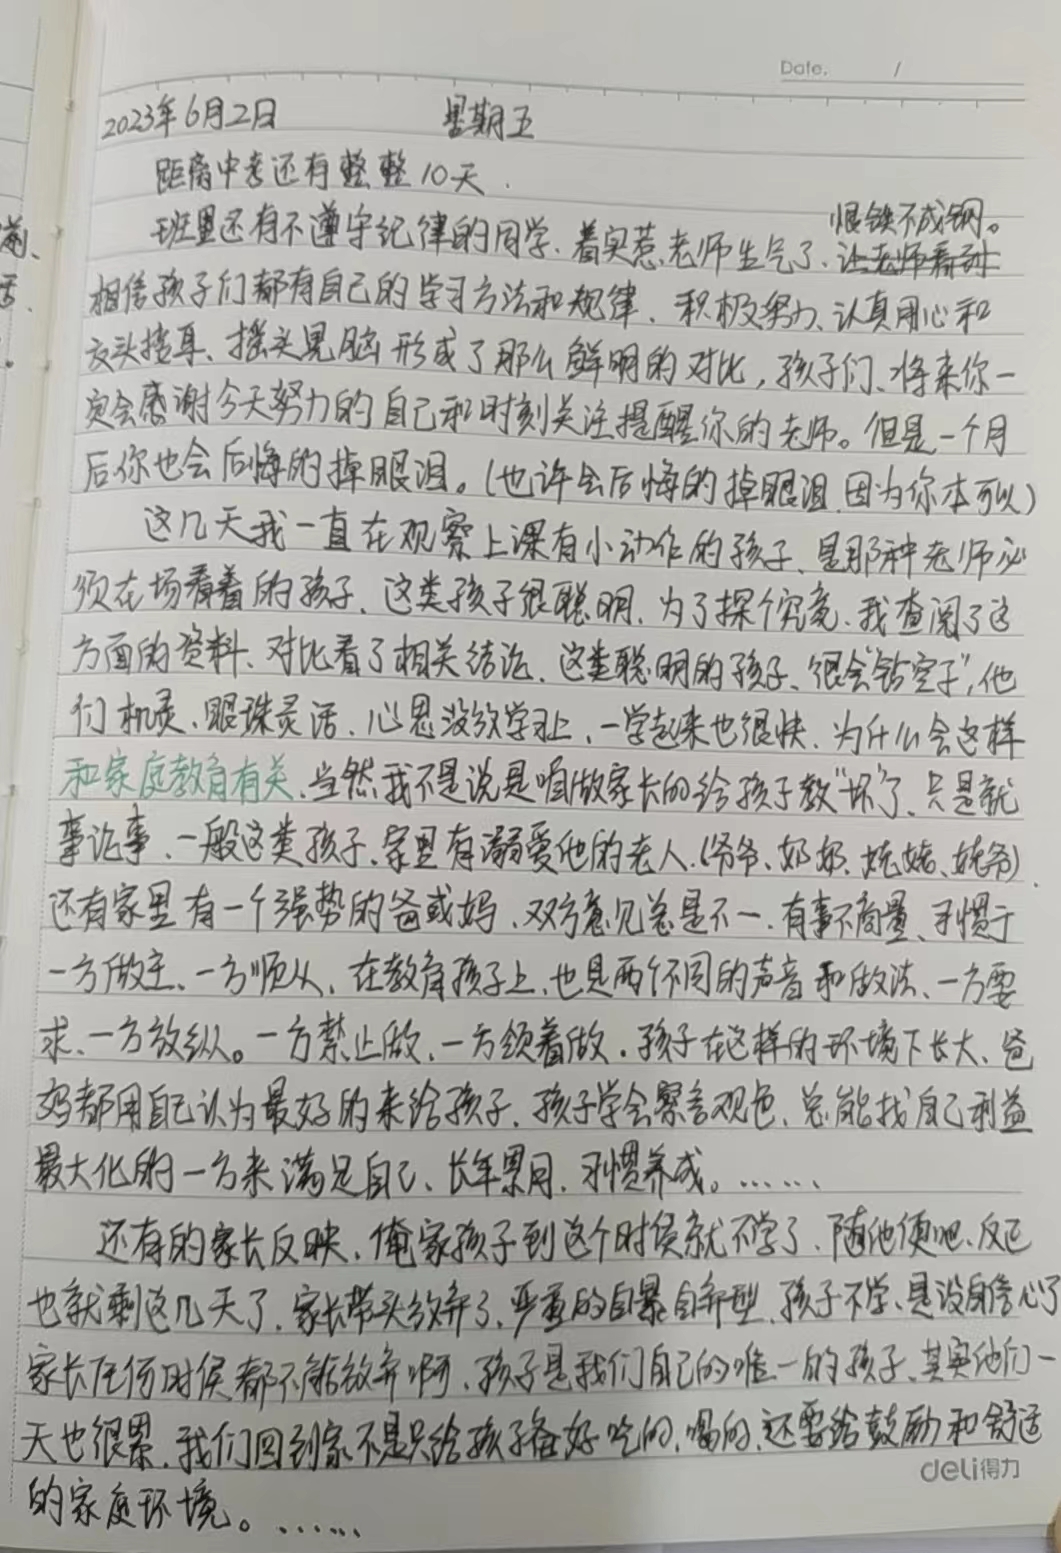 Date.      /
2023年6月2日      星期五
距离中考还有整整10天.
恨铁不成钢。
班里还有不遵守纪律的同学、着实惹老师生气了、让老师看到
相信孩子们都有自己的学习方法和规律、积极努力、认真用心和
交头接耳、摇头晃脑形成了那么鲜明的对比,孩子们、将来你一
定会感谢今天努力的自己和时刻关注提醒你的老师。但是一个月
后你也会后悔的掉眼泪。(也许会后悔的掉眼泪、因为你本可以)
这几天我一直在观察上课有小动作的孩子、是那种老师必
须在场看着的孩子、这类孩子很聪明、为了探个究竟、我查阅了这
方面的资料、对比看了相关结论、这类聪明的孩子、很会“钻空子”,他
们机灵、眼珠灵活、心思没放学习上、一学起来也很快、为什么会这样
和家庭教育有关、当然我不是说是咱做家长的给孩子教“坏”了、只是就
事论事、一般这类孩子、家里有溺爱他的老人.(爷爷、奶奶、姥姥、姥爷).
还有家里有一个强势的爸或妈、双方意见总是不一、有事不商量、习惯于
一方做主、一方顺从、在教育孩子上、也是两个不同的声音和做法、一方要
求、一方放纵。一方禁止做、一方领着做.孩子在这样的环境下长大、爸
妈都用自己认为最好的来给孩子、孩子学会察言观色、总能找自己利益
最大化的一方来满足自己、长年累月、习惯养成。……
还有的家长反映、俺家孩子到这个时侯就不学了、随他便吧、反正
也就剩这几天了、家长带头放弃了、严重的自暴自弃型、孩子不学、是没自信心了
家长任何时侯都不能放弃啊、孩子是我们自己的唯一的孩子、其实他们一
天也很累、我们回到家不是只给孩子备好吃的、喝的、还要给鼓励和舒适
的家庭环境。……
deli得力